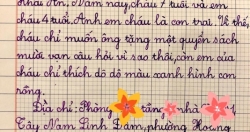 Khải An, Năm nay, cháu 7 tuổi và em
cháu 4 tuổi. Anh em cháu là con trai. Vì thế,
cháu chỉ muốn ông tặng một quyển sách
mười vạn câu hỏi vì sao thôi, còn em của
cháu thì thích đồ dò màu xanh hình con
rồng.
Địa chỉ: Phòng tầng nhà
Tây Nam Linh Đàm, phường Hoàng